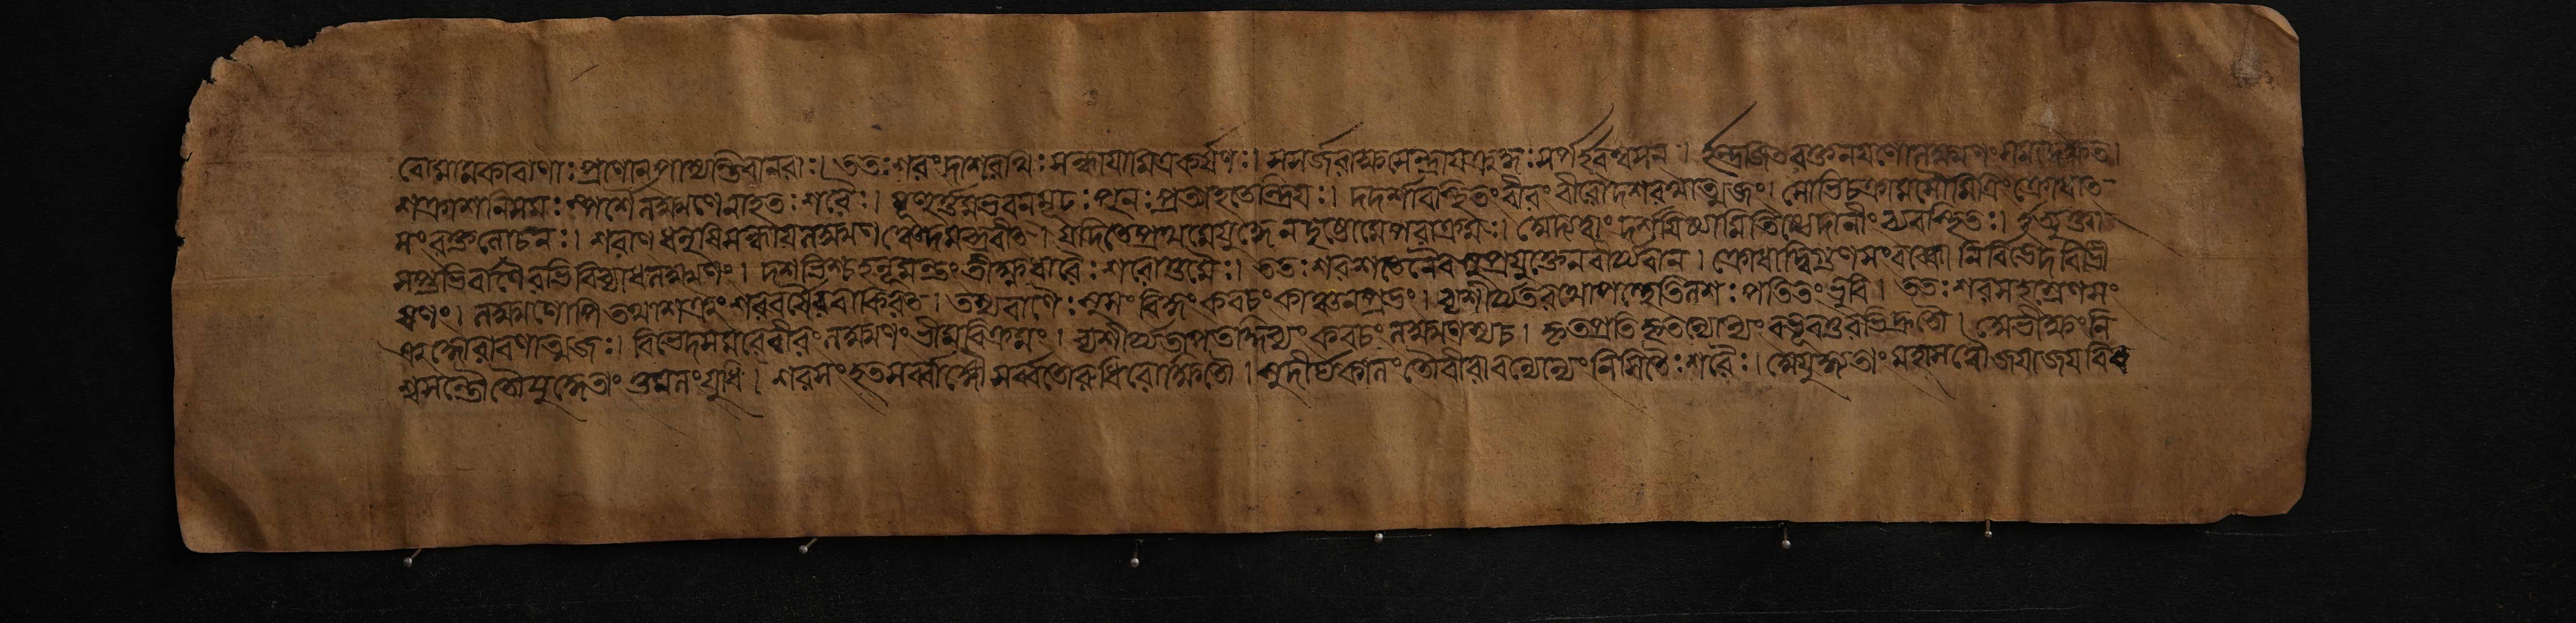 বোমামকাবাণাঃপ্রাণানপাস্যন্তিবানরাঃ। ততঃশরংদাশরাথিঃসন্ধায়ামিত্রকর্ষণঃ। সসর্জরাক্ষসেন্দ্রায়ক্রুদ্ধঃসর্পইবশ্বসন। ইন্দ্রজিত্ত্বরক্তনয়ণোলক্ষ্মণংসমুদৈক্ষত।
শক্রাশনিসমঃস্পর্শৈর্লক্ষ্মণেনাহতঃশরৈঃ। মুহূর্ত্তমভবনমূঢঃপুনঃপ্রত্যাহতেন্দ্রিয়ঃ। দদর্শাবস্থিতংবীরংবীরোদশরথাত্মজং। সোভিচক্রামসৌমিত্রিংক্রোধাত
সংরক্তলোচনঃ। শরাণধনুষিসন্ধায়লক্ষ্মণঞ্চেদমব্রবীত। যদিতেপ্রথমেযুদ্ধেনদৃষ্টোমেপরাক্রমঃ। সোদ্যত্বাংদর্শয়িষ্যামিতিষ্ঠেদানীংব্যবস্থিতঃ। ইত্যুক্ত্বা
সপ্তভির্বাণৈরভিবিব্যাধলক্ষ্মণং। দশভিশ্চহনূমন্তংতীক্ষ্ণধারৈঃশরোত্তমৈঃ। ততঃশরশতেনৈবসুপ্রযুক্তেনবীর্য্যবান। ক্রোধাদ্দ্বিগুণসংরব্ধোনির্বিভেদবিভী
ষণং। লক্ষ্মণোপিতথাশত্রুংশরবর্ষৈরবাকিরত। তস্যবাণৈঃসুসংবিদ্ধংকবচংকাঞ্চনপ্রভং। ব্যশীর্য্যতরথোপস্থেতিলশঃপতিতংভুবি। ততঃশরসহস্রেণসং
ক্রুদ্ধোরাবণাত্মজঃ। বিভেদসমরেবীরংলক্ষ্মণংভীমবিক্রমং। ব্যশীর্য্যতাপতদ্দিব্যংকবচংলক্ষ্মণস্যচ। কৃতপ্রতিকৃতন্যোন্যংবভূবতুরভিদ্রুতৌ। সোভীক্ষ্ণংনি
শ্বসন্তৌতৌযুদ্ধেতাংতুমুলংযুধি। শরসংহতসর্ব্বাঙ্গৌসর্ব্বতোরুধিরোক্ষিতৌ। সুদীর্ঘকালংতৌবীরাবন্যোন্যংনিশিতৈঃশরৈঃ। সোযুদ্ধ্যতাংমহাসত্ত্বৌজয়াজয়বিধ